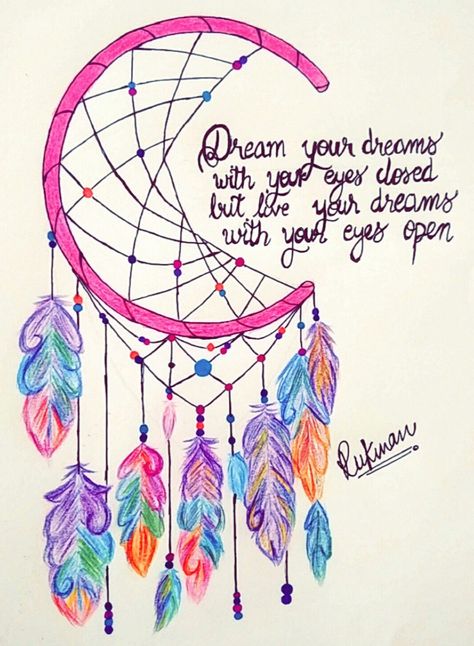 Dream your dreams
with your eyes closed
but live your dreams
with your eyes open
Rukman